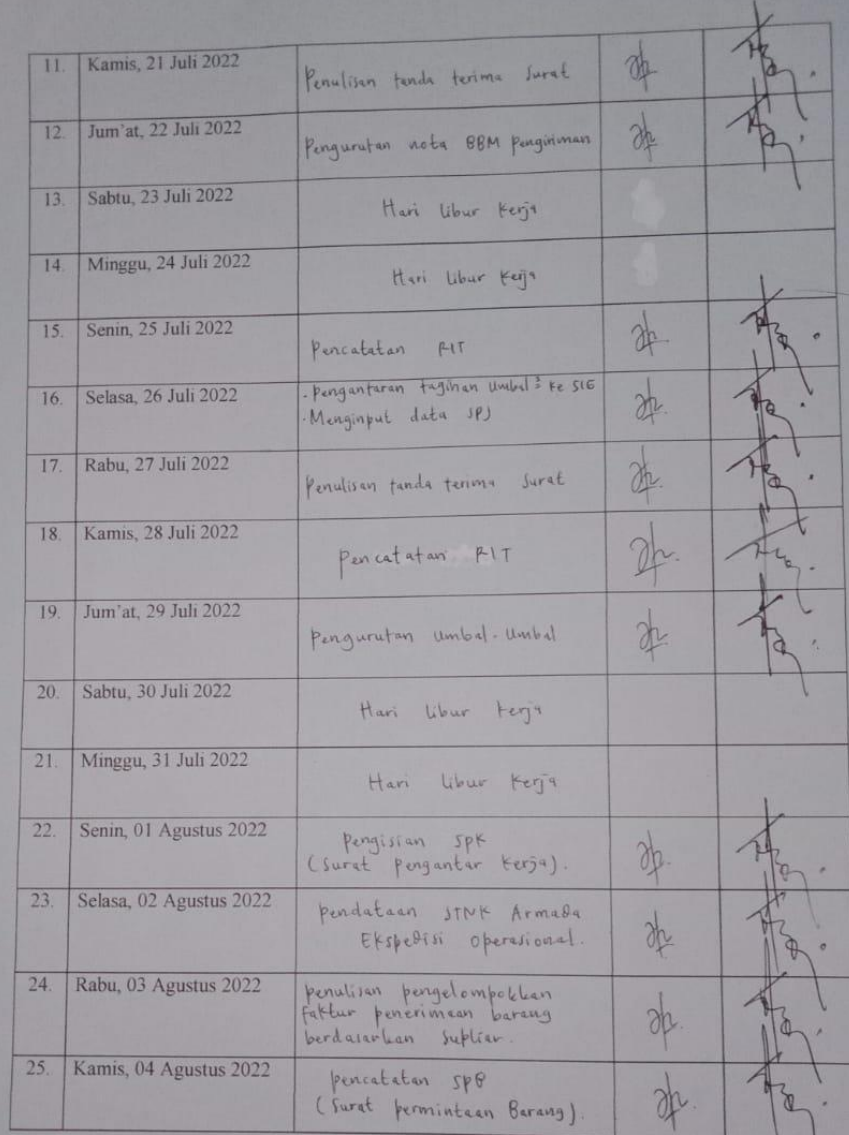 11. Kamis, 21 Juli 2022 Penulisan tanda terima Surat
12. Jum'at, 22 Juli 2022 Pengurutan nota BBM Pengiriman
13. Sabtu, 23 Juli 2022 Hari libur Kerja
14. Minggu, 24 Juli 2022 Hari libur Kerja
15. Senin, 25 Juli 2022 Pencatatan RIT
16. Selasa, 26 Juli 2022 - Pengantaran tagihan Umbal² ke SIG
- Menginput data SPJ
17. Rabu, 27 Juli 2022 Penulisan tanda terima Surat
18. Kamis, 28 Juli 2022 Pencatatan RIT
19. Jum'at, 29 Juli 2022 Pengurutan Umbal-Umbal
20. Sabtu, 30 Juli 2022 Hari libur Kerja
21. Minggu, 31 Juli 2022 Hari libur Kerja
22. Senin, 01 Agustus 2022 Pengisian SPK
(Surat Pengantar Kerja).
23. Selasa, 02 Agustus 2022 Pendataan STNK Armada
Ekspedisi Operasional.
24. Rabu, 03 Agustus 2022 Penulisan pengelompokkan
faktur penerimaan barang
berdasarkan Supliar.
25. Kamis, 04 Agustus 2022 Pencatatan SPB
(Surat permintaan Barang).